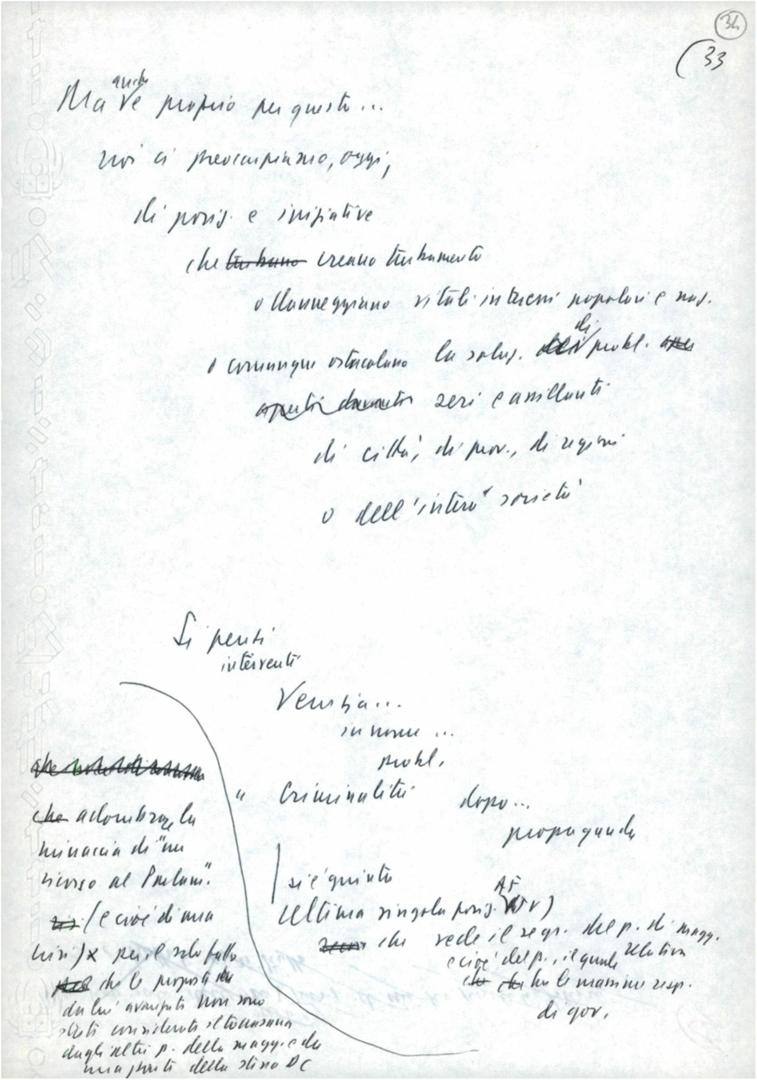 34
(33
anche
Ma è proprio per questo...
noi ci preoccupiamo, oggi,
di posiz. e iniziative
che turbano creano turbamento
o danneggiano vitali interessi popolari e naz.
o comunque ostacolano la soluz. di probl.
aperti davanti seri e assillanti
di città, di prov., di regioni
o dell'intera società
Si pensi
interventi
Venezia...
in nome...
probl.
" Criminalità dopo...
propaganda
si è giunti a
Ultima singola posiz.
che vede il segr. del p. di magg.
relativa
e cioè del p., il quale
che ha le massime resp.
di gov.
che adombra la
minaccia di "un
ricorso al Parlam."
(e cioè di una
crisi) x per il solo fatto
che le proposte
da lui avanzate non sono
state considerate
dagli altri p. della magg. e da
una parte della stessa DC